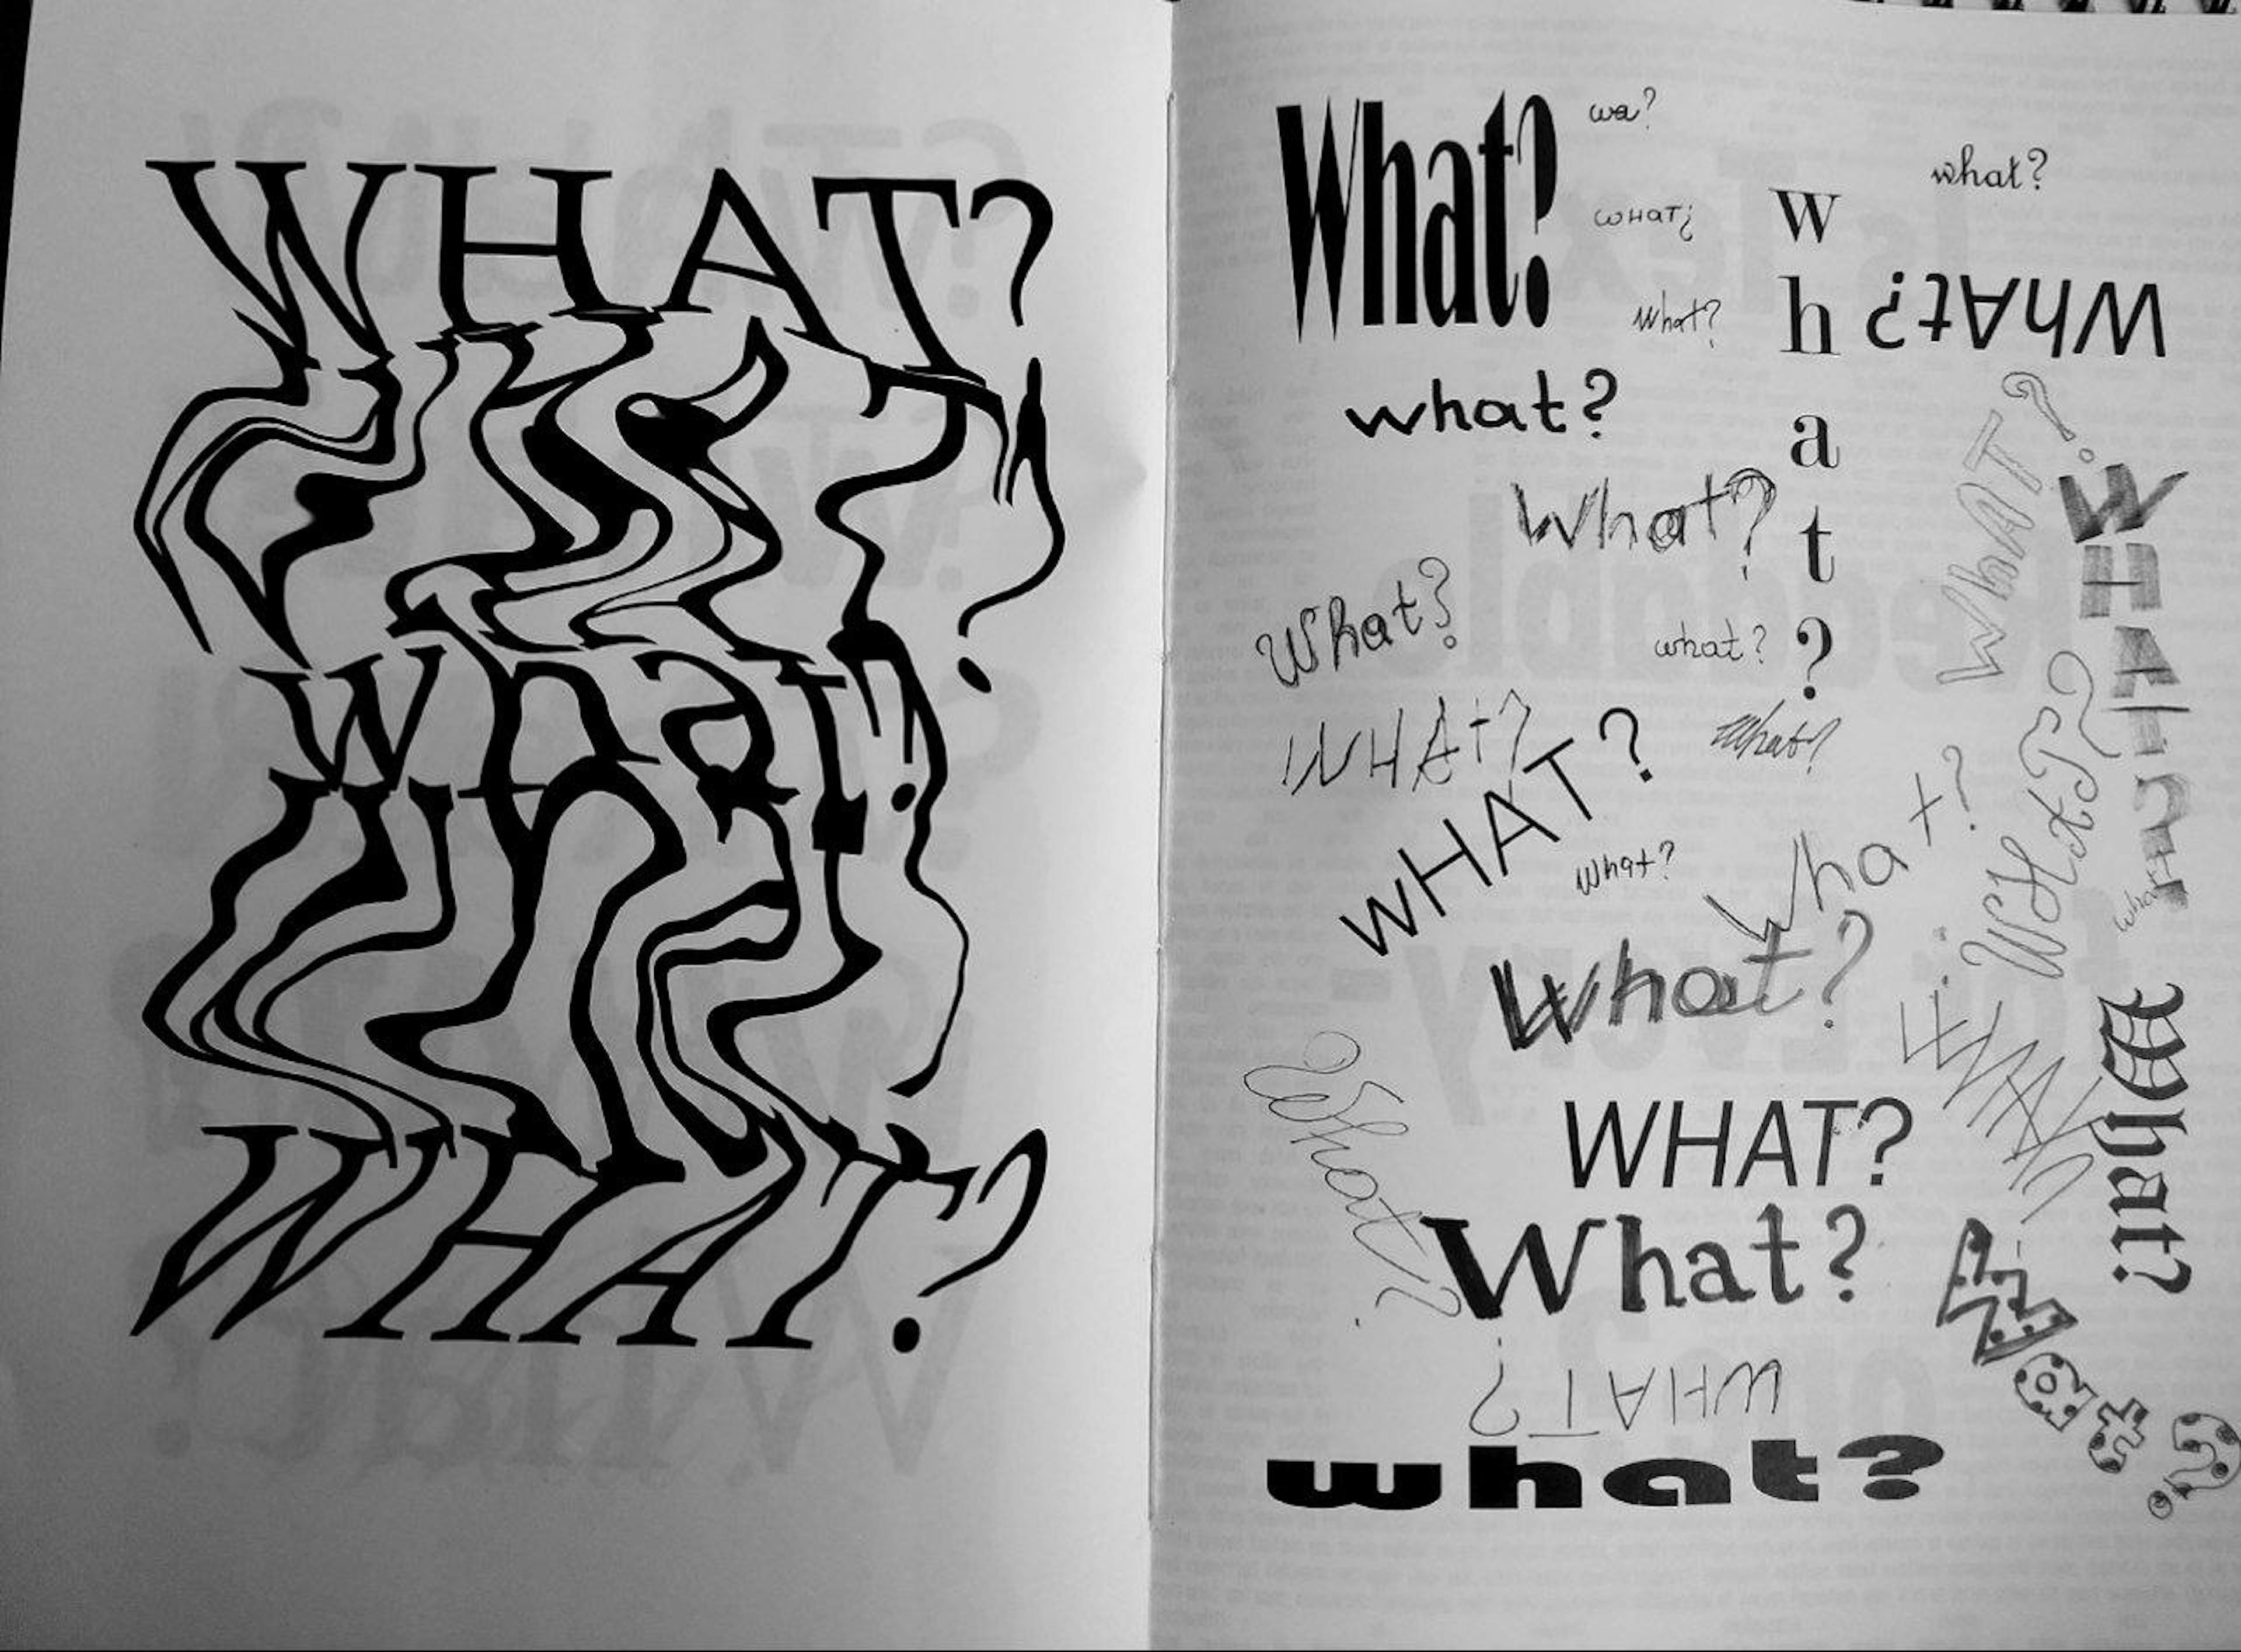 WHAT?
What?
WHAT?
What?
wa?
what?
WHAT¿
w
h
a
t
?
WhAt?
What?
what?
WhAT?
What?
WHAT?
What?
what?
WHAt?
What?
WHAT?
wHAT?
What?
What?
WHxT?
What?
What?
WHAT?
What?
What?
What?
What?
WHAT?
what?